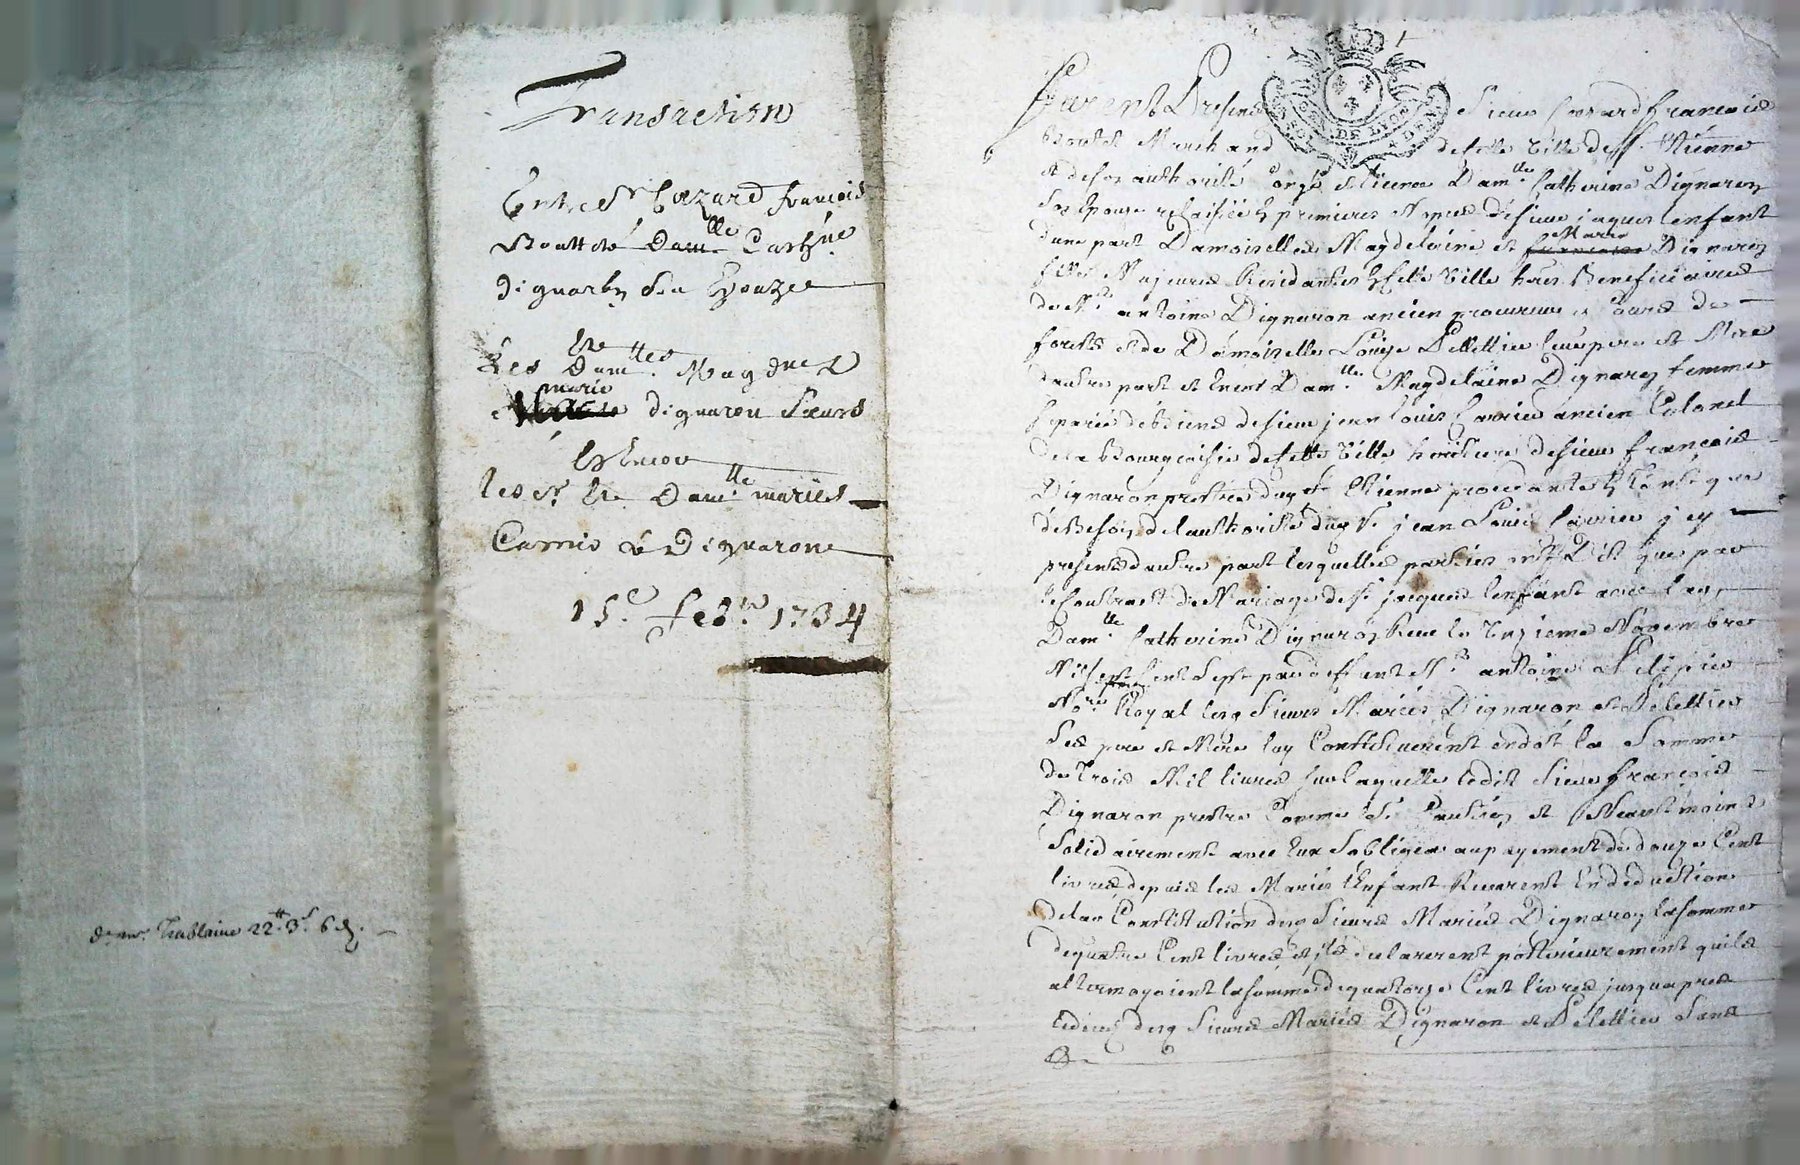 de mr. Trablaine 22# 3s 6d.
Transaction
Entre Sr Cezard françois
Bouttet é Damlle Cathne
dignaron Sa Epouze
Les Damlles Magdne
et marie dignaron Sœurs
Encor
les Sr et Damlle mariés
Carrié & Dignaron
15e febr 1734
Furent Presens Sieur Cezard françois
Marchand de cette Ville de St. Etienne
et de son authorité Damlle Catherine Dignaron
Son Epouze en premieres Nopces de sieur jaques Lenfant
dune part Damoiselles Magdelaine et Marie Dignaron
filles Majeures Residantes en cette Ville heres Beneficiaires
de Me antoine Dignaron ancien procureur es Cours de
forests et de Damoiselle Louize Pellettier leurs pere et Mere
dautre part et Encor Damlle Magdelaine Dignaron femme
separée de biens de sieur jean Louis Carrier ancien Colonel
de la Bourgeoisie de cette Ville heritiere de sieur françois
Dignaron prestre dud St. Etienne procedante en tant que
de Besoin de lauthorité dud Sr. jean Louis Carrier
present dautre part lesquelles parties ont Dit que par
le Contract de Mariage de Sr. jacques Lenfant avec lad
Damlle Catherine Dignaron Receu le onzieme Novembre
Mil sept Cent Sept par deffunt Me antoine
Nore Royal lesd Sieurs Mariés Dignaron et Pelettier
Ses pere et Mere luy Constituerent en dot la Somme
de Trois Mil livres sur laquelle ledit Sieur françois
Dignaron prestre Comme Caution et Neantmoins
Solidairement avec Eux Sobligea au payement de douze Cent
livres depuis les Mariés Lenfant Receurent En deduction
de la Constitution desd Sieurs Mariés Dignaron la somme
de quatre Cent livres et ils declarerent posterieurement quils
attermoyoient la somme de quatorze Cent livres jusquapres
le deces desd Sieurs Mariés Dignaron et Pelettier Sans